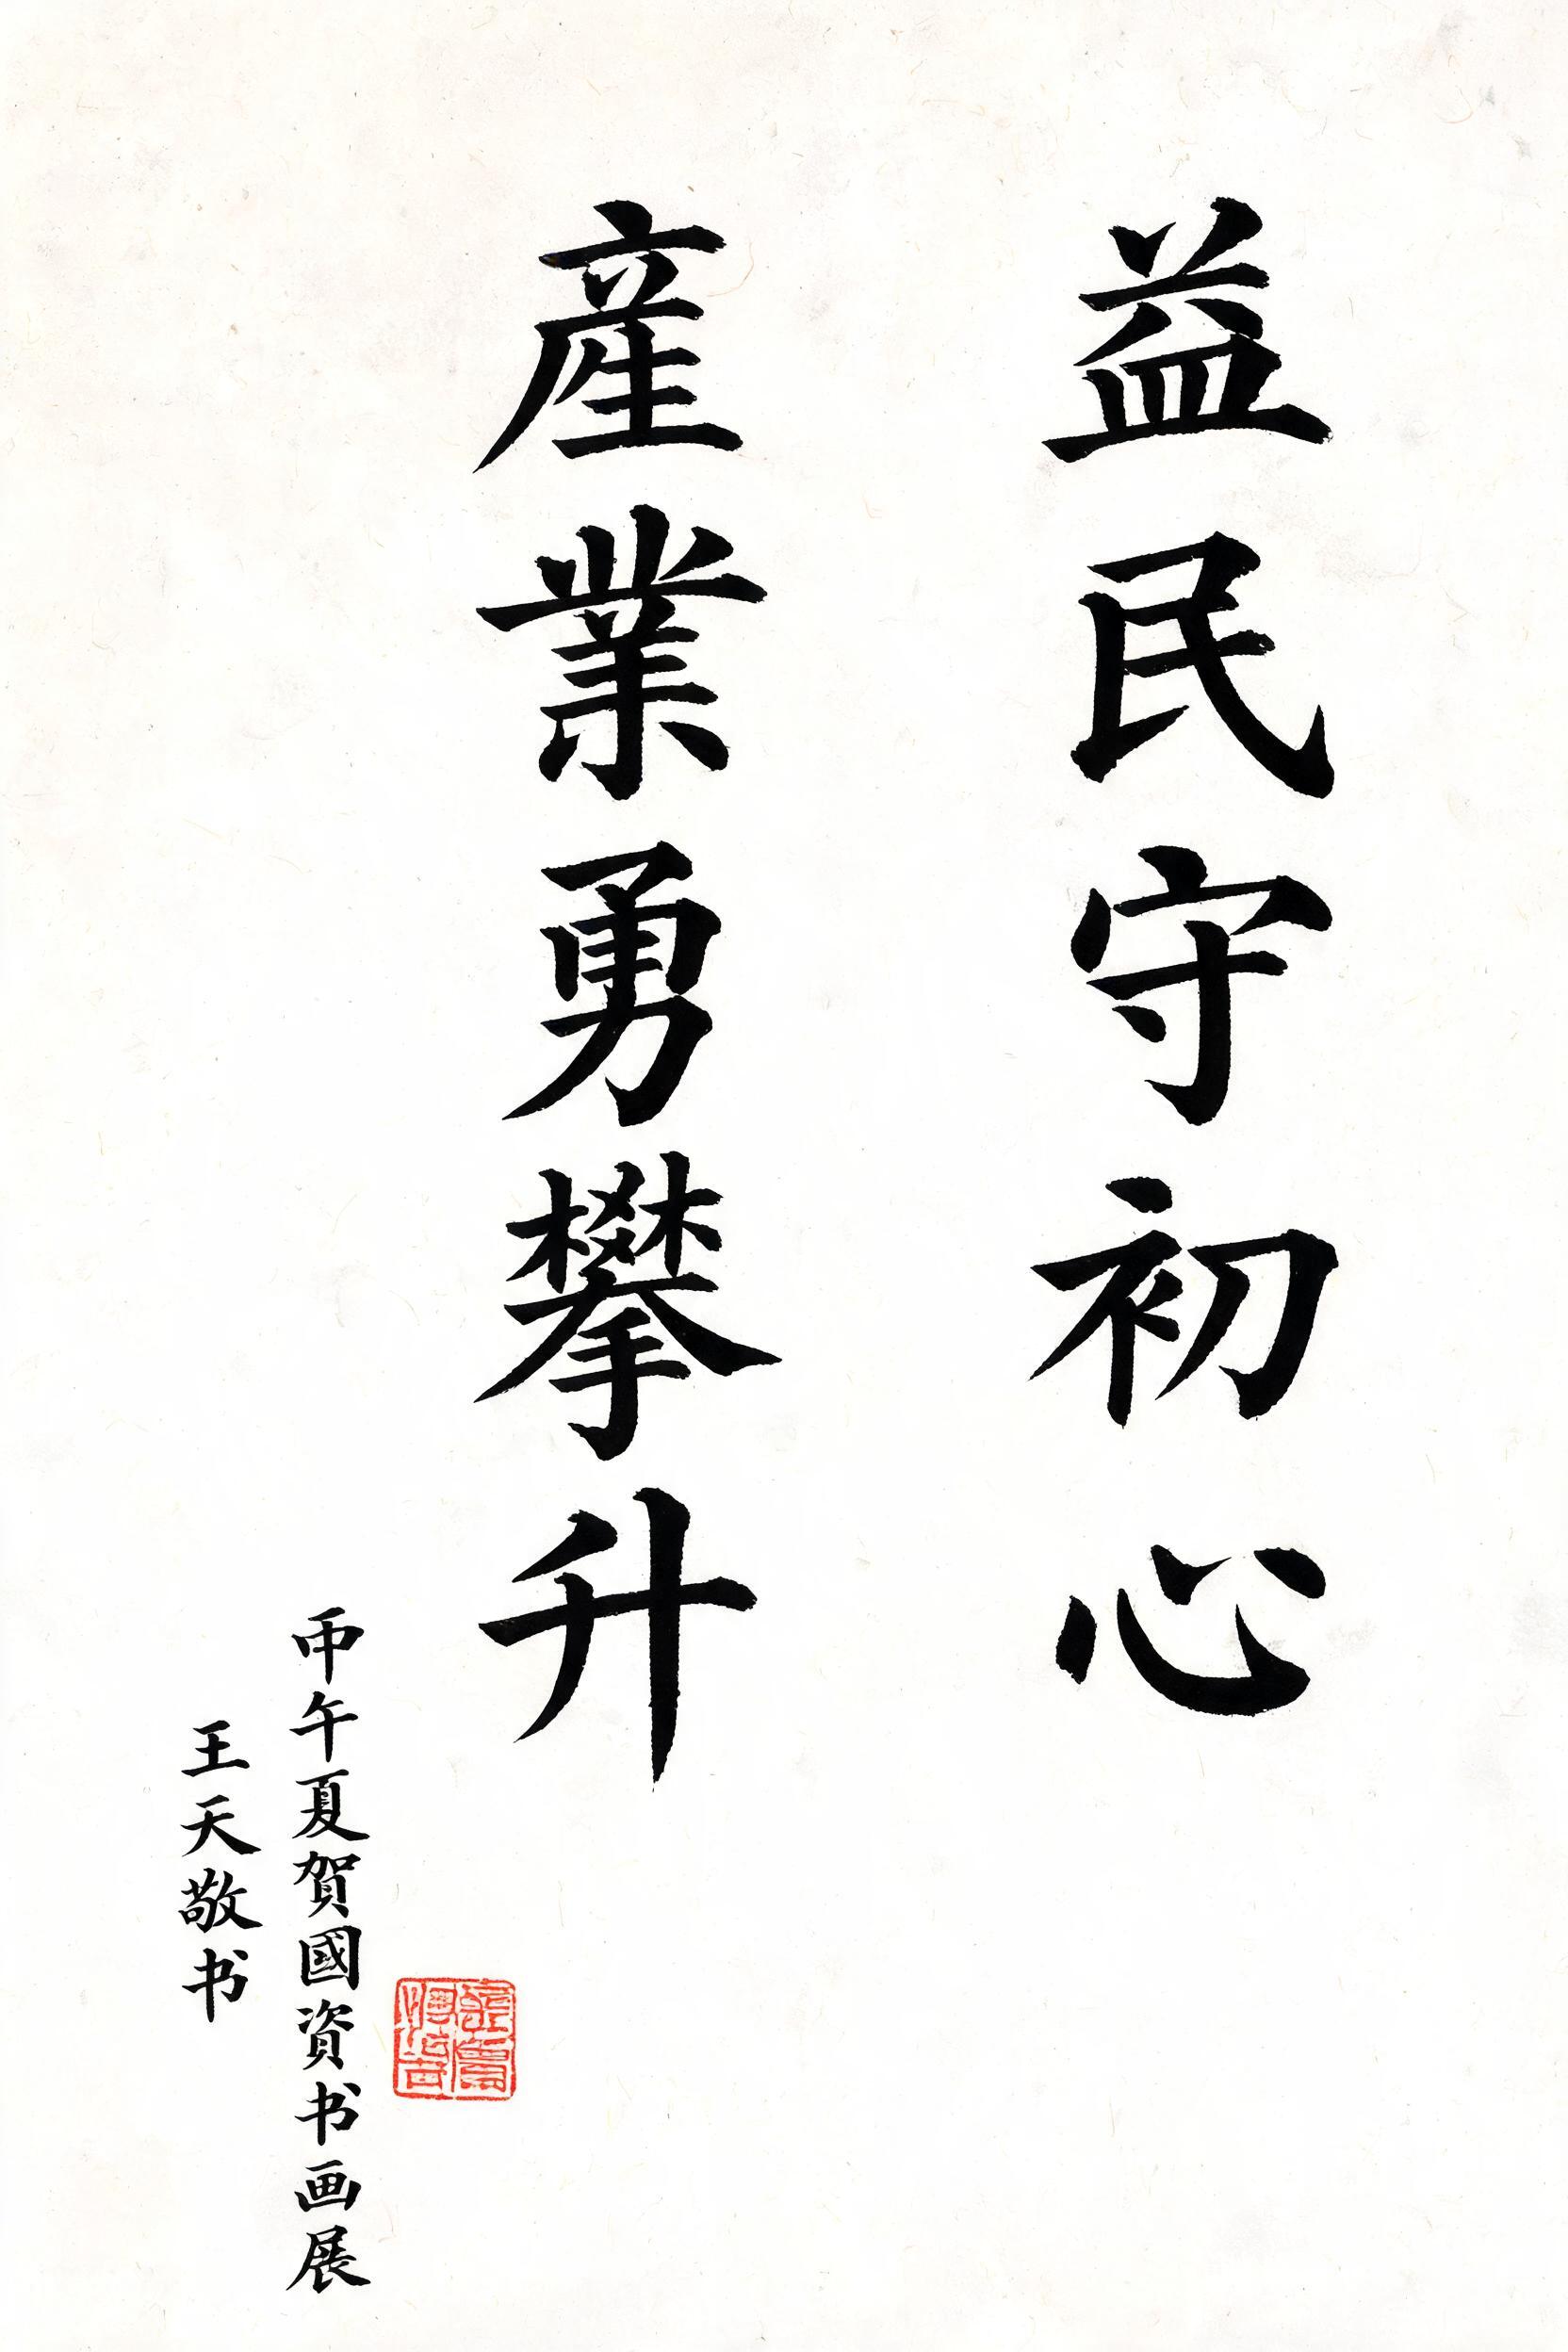 益民守初心
産業勇攀升
帀午夏賀國資书画展
王天敬书